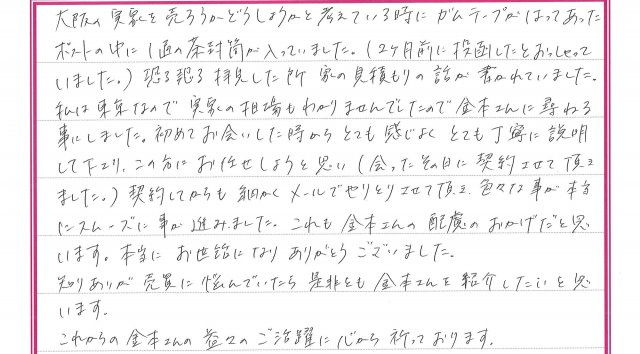 大阪の実家を売ろうかどうしようかと考えている時にガムテープがはってあった
ポストの中に1通の茶封筒が入っていました。(2ヶ月前に投函したとおっしゃって
いました。)恐る恐る拝見した所 家の見積もりの話が書かれていました。
私は東京なので実家の相場もわかりませんでしたので金本さんに尋ねる
事にしました。初めてお会いした時からとても感じよくとても丁寧に説明
して下さり、この方にお任せしようと思い(会ったその日に契約させて頂き
ました。)契約してからも細かくメールでやりとりさせて頂き、色々な事が本当
にスムーズに事が進みました。これも金本さんの配慮のおかげだと思
います。本当にお世話になりありがとうございました。
知り合いが売買に悩んでいたら是非とも金本さんを紹介したいと思
います。
これからの金本さんの益々のご活躍に心から祈っております。